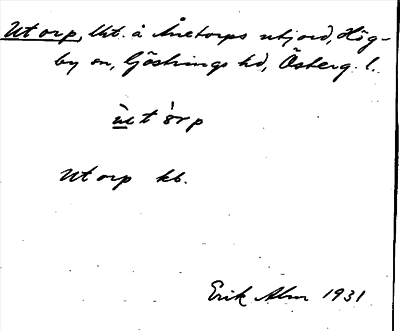 Utorp, lht. å Åretorps utjord, Hög-
by sn, Göstrings hd, Österg. l.
ùt òrp
Utorp kb.
Erik Alm 1931